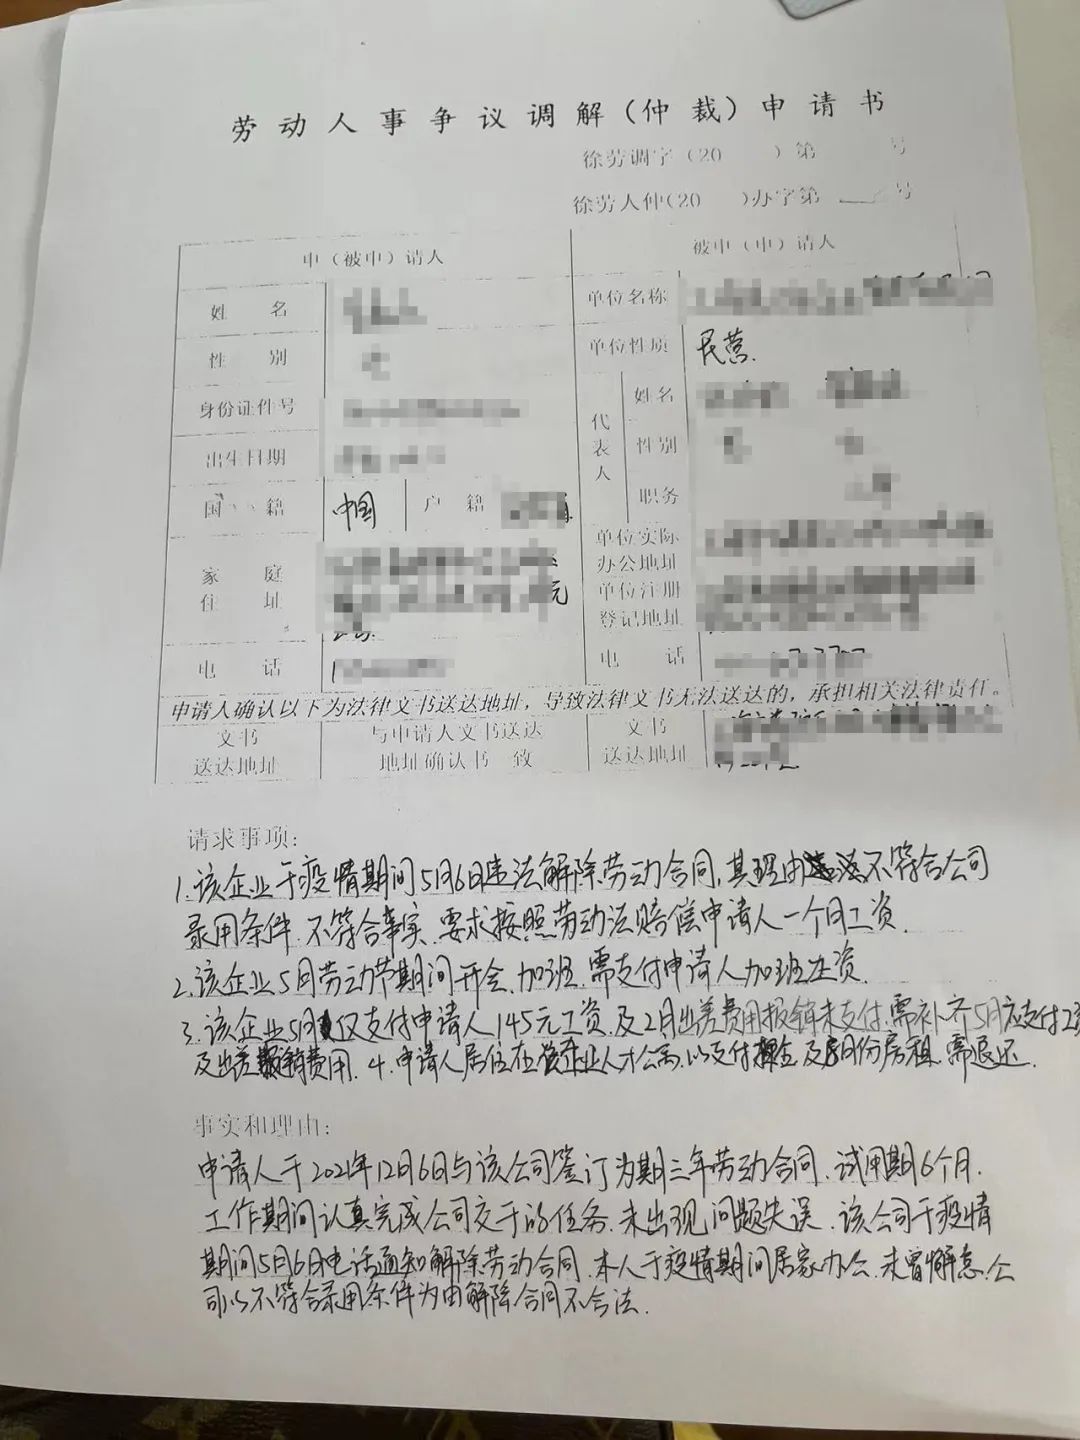 劳动人事争议调解（仲裁）申请书
徐劳调字（20　　）第　　号
徐劳人仲(20　　)办字第　　号
申（被申）请人
被申（申）请人
姓 名
单位名称
性 别
单位性质
民营.
身份证件号
代表人
姓名
出生日期
性别
国 籍
中国
户 籍
职务
单位实际
办公地址
家 庭
住 址
元
单位注册
登记地址
电 话
电 话
申请人确认以下为法律文书送达地址，导致法律文书无法送达的，承担相关法律责任。
文书
送达地址
与申请人文书送达
地址确认书一致
文书
送达地址
请求事项:
1.该企业于疫情期间5月6日违法解除劳动合同,其理由不符合公司
录用条件.不符合事实.要求按照劳动法赔偿申请人一个月工资.
2.该企业5月劳动节期间开会.加班.需支付申请人加班工资.
3.该企业5月仅支付申请人145元工资.及2月出差费用报销未支付.需补齐5月应支付工资
及出差报销费用. 4.申请人居住在企业人才公寓.以支付押金及5月份房租.需退还.
事实和理由:
申请人于2021年12月6日与该公司签订为期三年劳动合同.试用期6个月.
工作期间认真完成公司交于的任务.未出现问题失误.该公司于疫情
期间5月6日电话通知解除劳动合同.本人于疫情期间居家办公.未曾懈怠.公
司以不符合录用条件为由解除合同不合法.